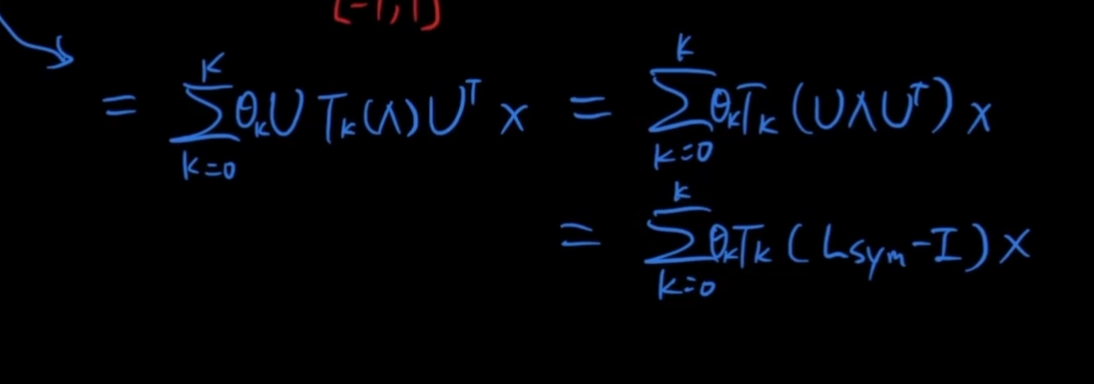 [-1,1]
= \sum_{k=0}^{K} θ_k U T_k(Λ) U^T x = \sum_{k=0}^{K} θ_k T_k (U Λ U^T) x
= \sum_{k=0}^{K} θ_k T_k (L_{sym} - I) x